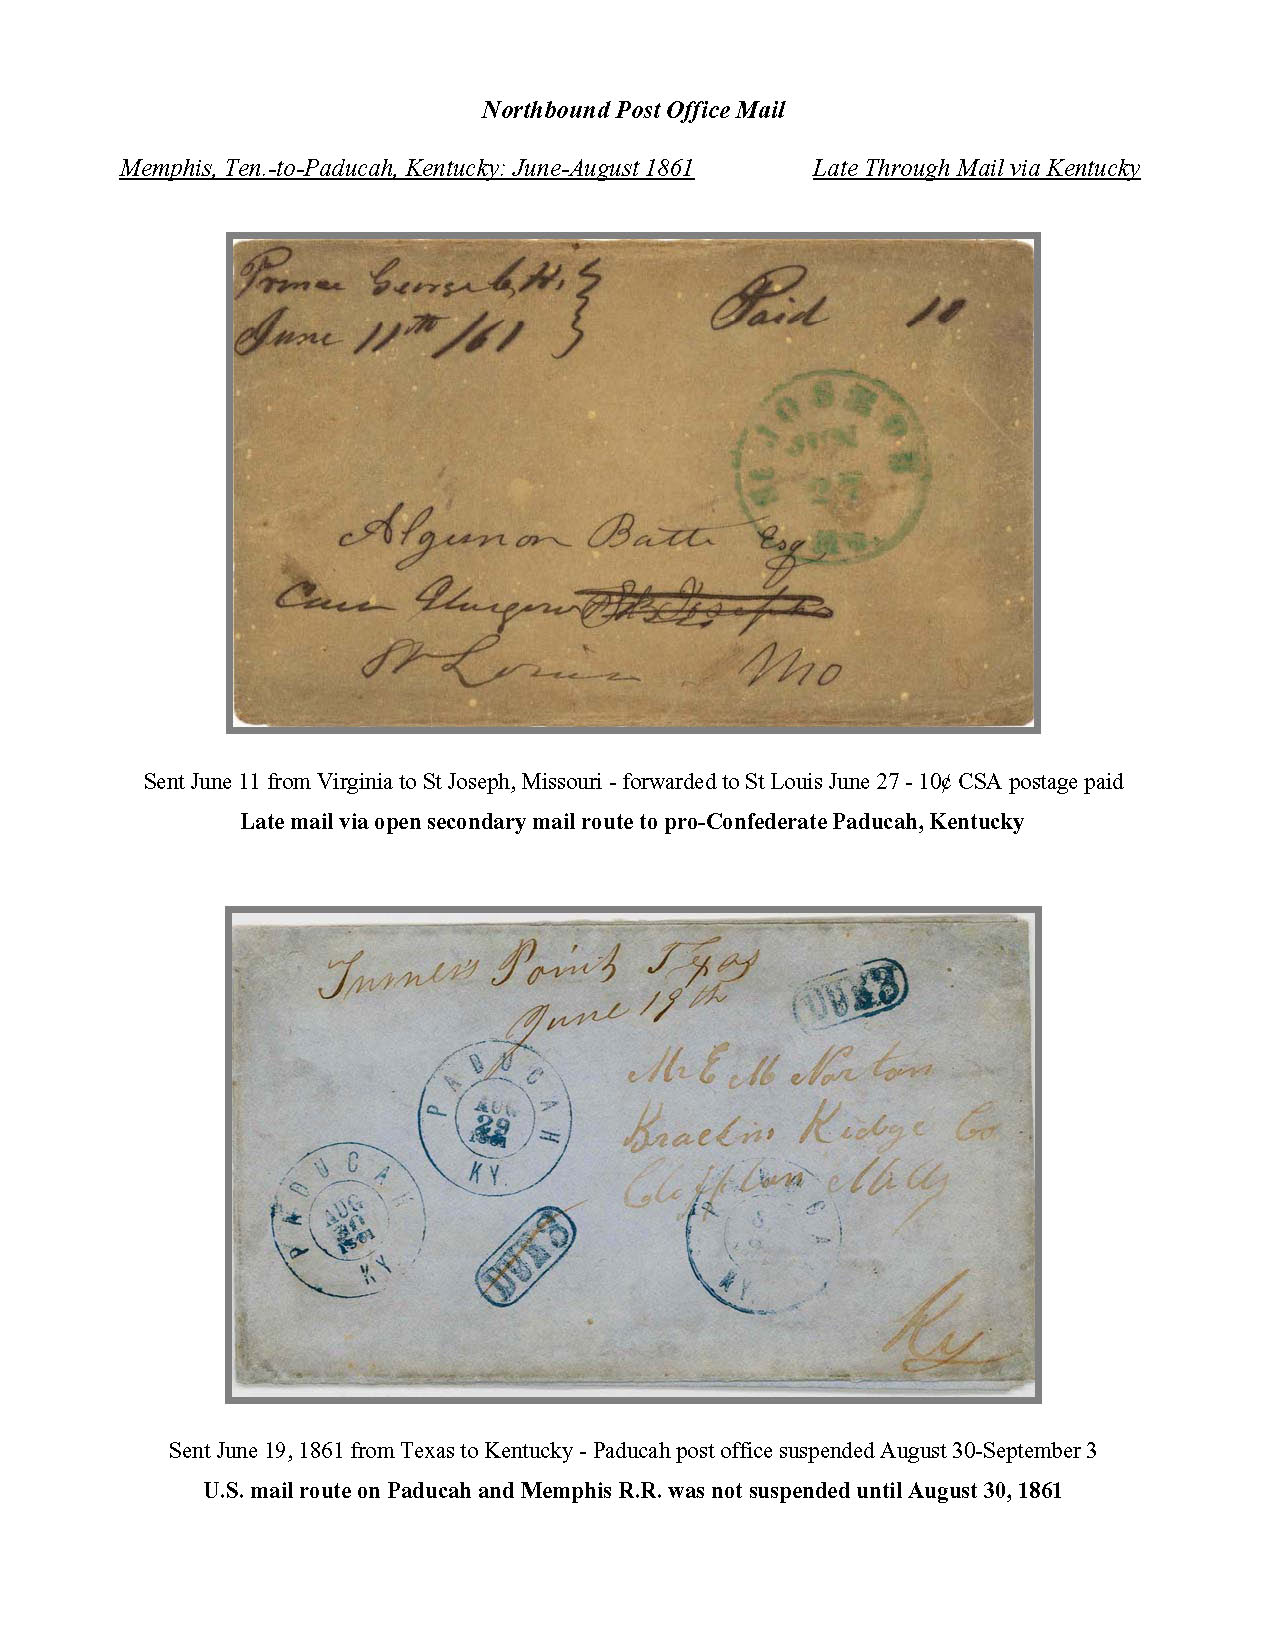 Northbound Post Office Mail
Memphis, Ten.-to-Paducah, Kentucky: June-August 1861
Late Through Mail via Kentucky
Prince George C, H,
June 11th /61
Paid 10
St JOSEPH
JUN
27
Mo.
Algernon Batte Esq
Care Glasgow St Joseph
St Louis Mo
Sent June 11 from Virginia to St Joseph, Missouri - forwarded to St Louis June 27 - 10¢ CSA postage paid
Late mail via open secondary mail route to pro-Confederate Paducah, Kentucky
Turner's Point Texas
June 19th
DUE 3
PADUCAH
AUG
29
1861
KY.
Mr E M Norton
Ridge Co
Mills
Ky
PADUCAH
AUG
30
1861
KY
DUE
KY.
Sent June 19, 1861 from Texas to Kentucky - Paducah post office suspended August 30-September 3
U.S. mail route on Paducah and Memphis R.R. was not suspended until August 30, 1861